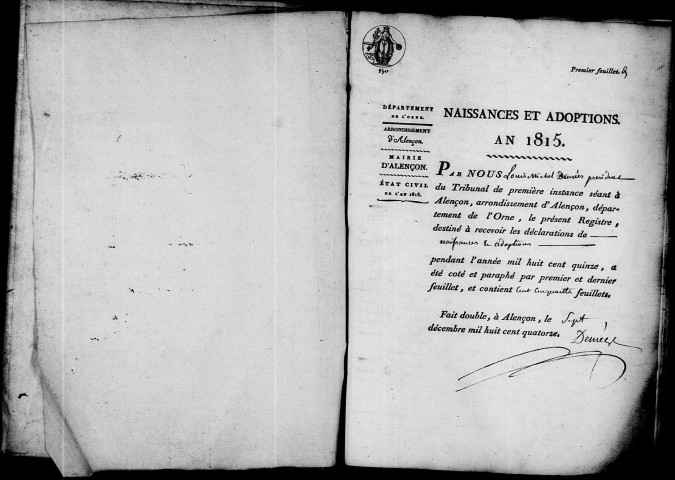 150
Premier feuillet.
DÉPARTEMENT
DE L'ORNE.
ARRONDISSEMENT
d'Alençon.
MAIRIE
D'ALENÇON.
ÉTAT CIVIL
DE L'AN 1815.
NAISSANCES ET ADOPTIONS.
AN 1815.
PAR NOUS Louis Michel Demées président
du Tribunal de première instance séant à
Alençon, arrondissement d'Alençon, dépar-
tement de l'Orne, le présent Registre,
destiné à recevoir les déclarations de
naissances et adoptions
pendant l'année mil huit cent quinze, a
été coté et paraphé par premier et dernier
feuillet, et contient cent cinquante feuillets.
Fait double, à Alençon, le Sept
décembre mil huit cent quatorze.
Demées